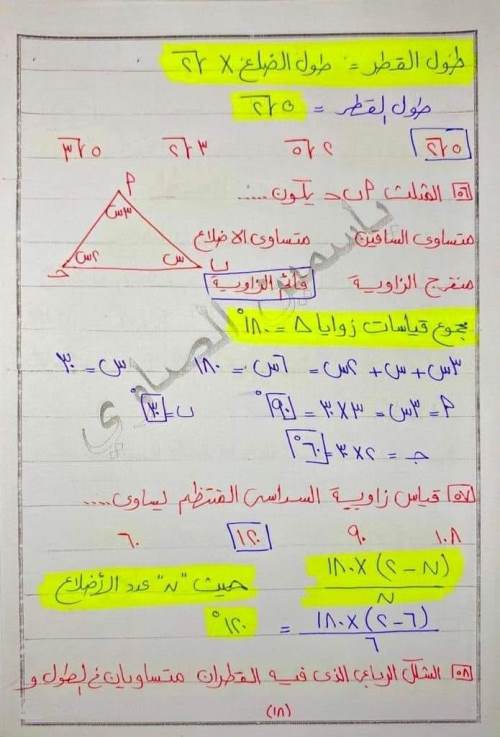 طول القطر = طول الضلع × √٢
طول القطر = ٥√٢
٥√٢   ٢√٥   ٣√٢   ٥√٣
٥٦ المثلث P ب ح يكون .....
متساوى الساقين   متساوى الاضلاع
منفرج الزاوية   قائم الزاوية
P
٣س
٢س   س
ح   ب
مجموع قياسات زوايا Δ = ١٨٠°
٣س + س + ٢س = ٦س = ١٨٠   س = ٣٠
P = ٣س = ٣×٣٠ = ٩٠°   ب = ٣٠°
جـ = ٢×٣٠ = ٦٠°
٥٧ قياس زاوية السداسى المنتظم يساوى ....
١٠٨   ٩٠   ١٢٠   ٦٠
(ن - ٢) × ١٨٠
ن
حيث "ن" عدد الأضلاع
(٦ - ٢) × ١٨٠
٦
= ١٢٠°
٥٨ الشكل الرباعى الذى فيه القطران متساويان فى الطول و
(١٨)
ياسمين الصاوي